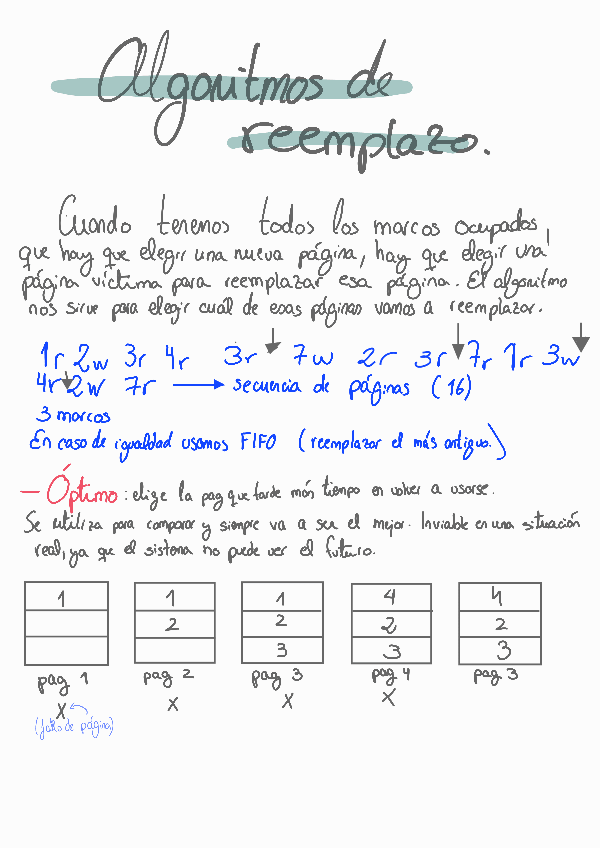 Algoritmos de
reemplazo.
Cuando tenemos todos los marcos ocupados,
que hay que elegir una nueva página, hay que elegir una
página víctima para reemplazar esa página. El algoritmo
nos sirve para elegir cual de esas páginas vamos a reemplazar.
1r 2w 3r 4r 3r 7w 2r 3r 7r 1r 3w
4r 2w 7r → secuencia de páginas (16)
3 marcos
En caso de igualdad usamos FIFO (reemplazar el más antiguo.)
— Óptimo: elige la pag que tarde más tiempo en volver a usarse.
Se utiliza para comparar y siempre va a ser el mejor. Inviable en una situación
real, ya que el sistema no puede ver el futuro.
1 1 1 4 4
2 2 2 2
3 3 3
pag 1 pag 2 pag 3 pag 4 pag 3
X X X X
(fallo de página)